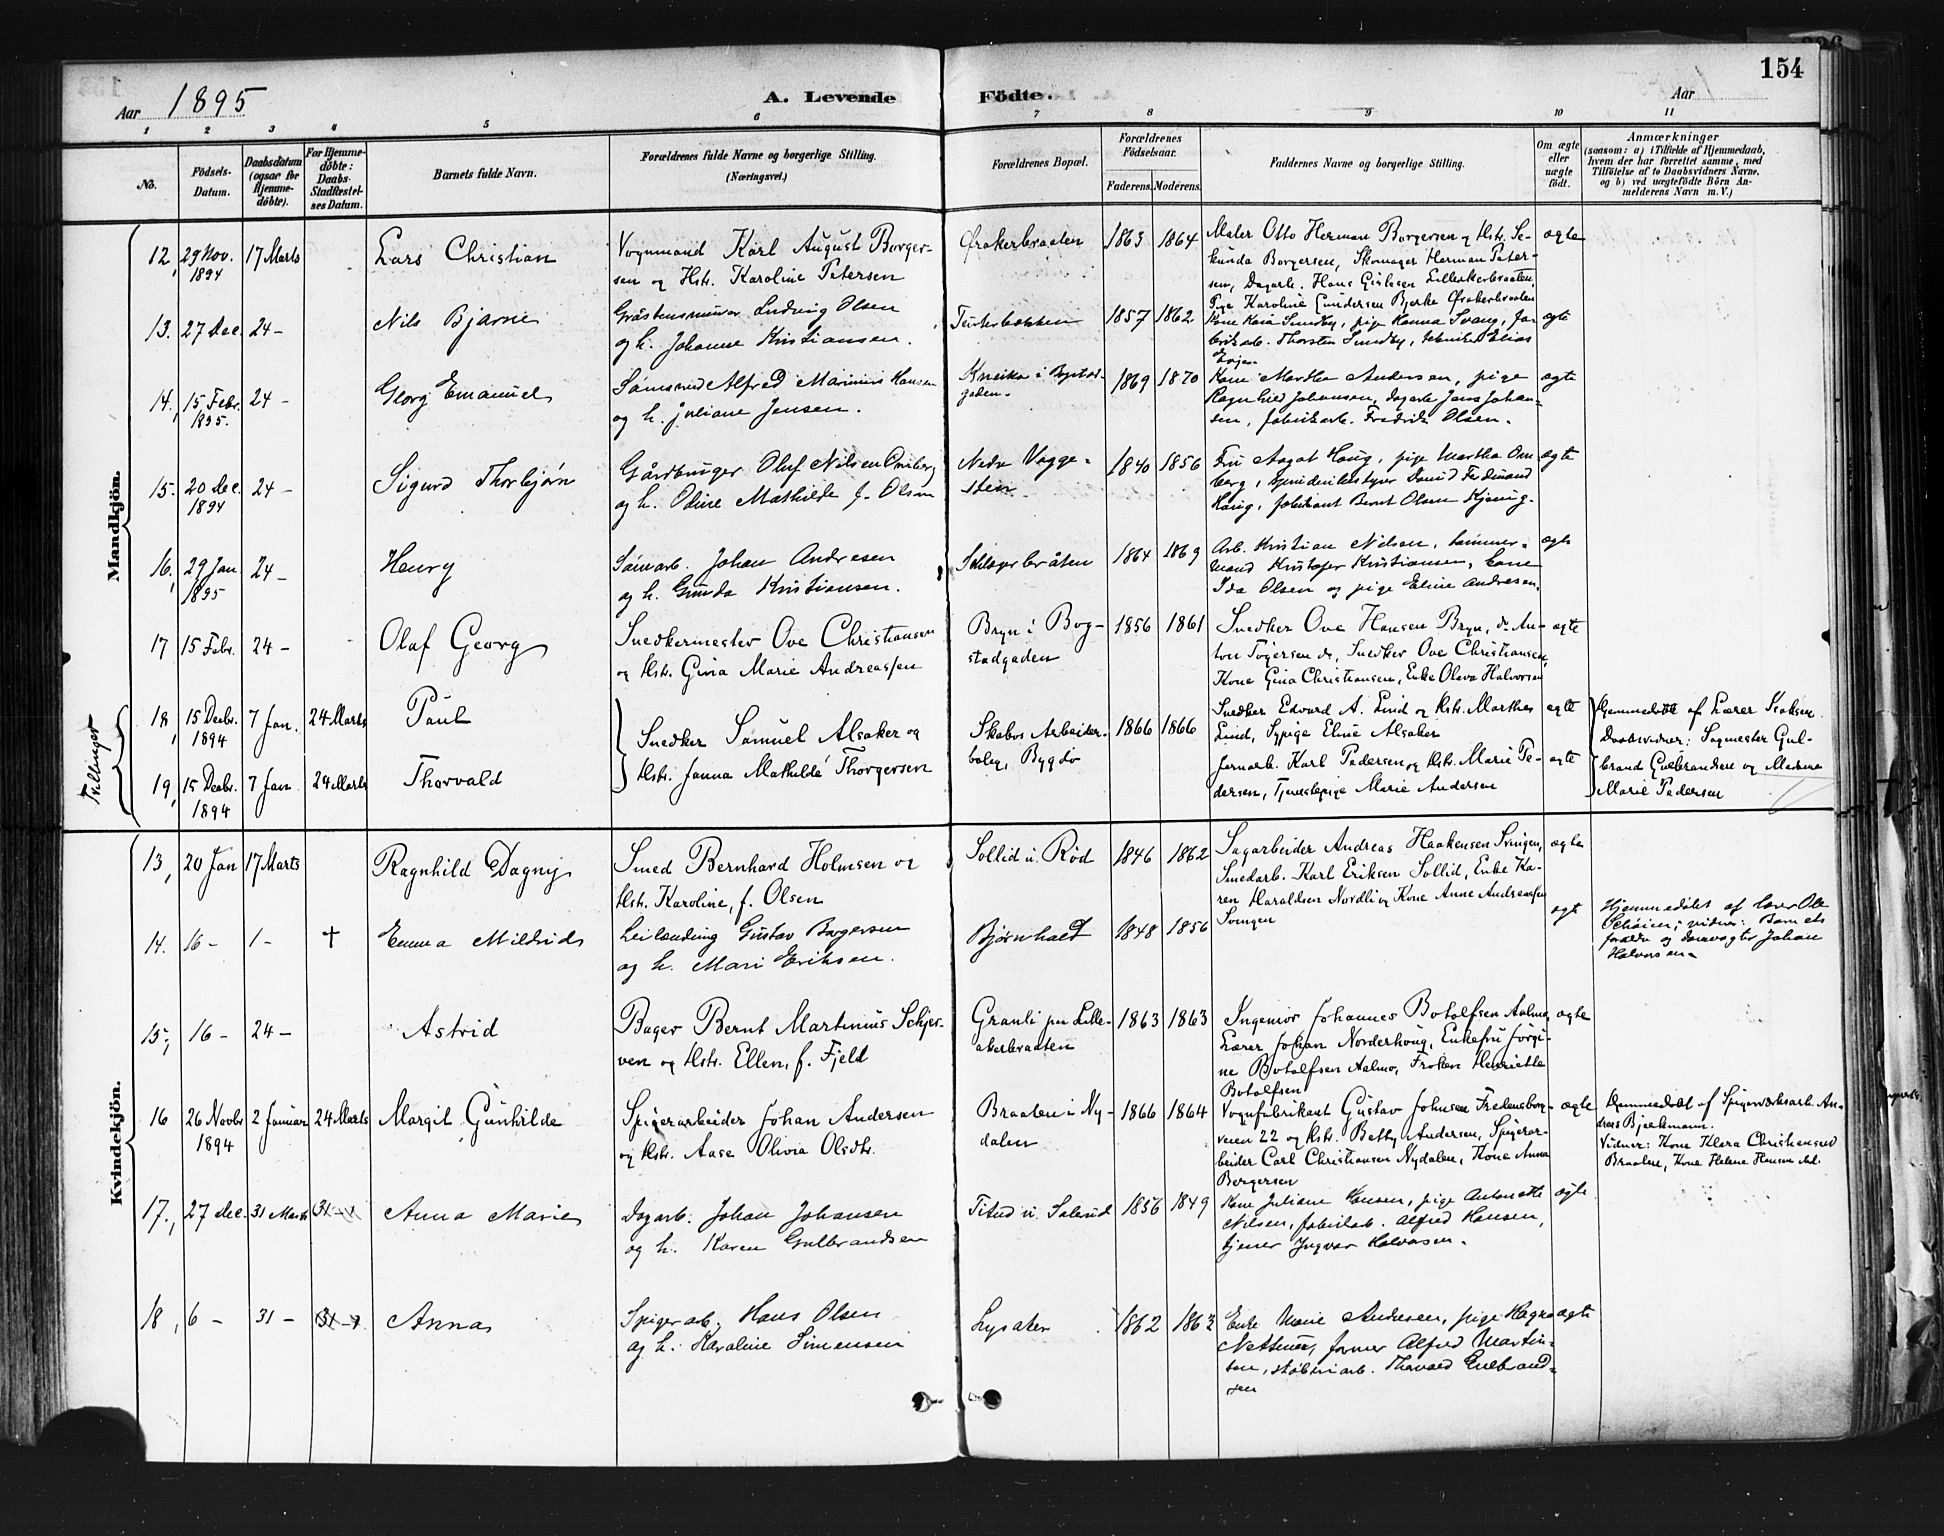 154
Aar 1895
A. Levende Födte.
Aar
1 2 3 4 5 6 7 8 9 10 11
No.
Födsels-Datum.
Daabsdatum (ogsaa for Hjemme-döbte).
For Hjemme-döbte: Daabs-Stadfæstel-ses Datum.
Barnets fulde Navn.
Forældrenes fulde Navne og borgerlige Stilling. (Næringsvei.)
Forældrenes Bopæl.
Forældrenes Födselsaar.
Faderens. Moderens.
Faddernes Navne og borgerlige Stilling.
Om ægte eller uægte födt.
Anmærkninger
(saasom: a) i Tilfælde af Hjemmedaab, hvem der har forrettet samme, med Tilföielse af to Daabsvidners Navne, og b) ved uægtefödte Börn An-melderens Navn m. V.)
Mandkjön.
12, 29 Nov. 1894 17 Marts
Lars Christian
Vognmand Karl August Borger-
sen og Hstr. Karoline Petersen
Örakerbraaten
1863 1864
Maler Otto Herman Borgersen og Hstr. Se-
kunda Borgersen, Skomager Herman Peter-
sen, Dagarb. Hans Lilleakerbraaten,
Pige Karoline Gundersen Bjerke Örakerbraaten
ægte
13. 27 Dec. 24 -
Nils Bjarne
Gråstensmurer Ludvig Olsen
og h. Johanne Kristiansen.
1857 1862
Kone Sundby, pige Hanna Svang, fa-
brikarb. Thorsten Sundby, Elias
ægte
14, 15 Febr. 1895. 24 -
Georg Emanuel
Alfred Marinius Hansen
og h. Juliane Jensen.
gaden.
1869 1870
Kone Martha Andersen, pige
Ragnhild Johansen, dagarb. Johan-
sen, fabrikarb. Fredrik Olsen.
ægte
15. 20 Dec. 1894 24 -
Sigurd Thorbjørn
Gårdbruger Oluf Nilsen
og h. Odine Mathilde f. Olsen
Nedre Vagge-
sten
1840 1856
Fru Aagot Haug, pige Martha Om-
berg, David Ferdinand
Haug, fabrikant Bernt Olsen
ægte
16, 29 Jan 1895 24 -
Henry
Johan Andresen
og h. Gunda Kristiansen.
1864 1869
Arb. Kristian Nilsen, tømmer-
mand Kristofer Kristiansen, kone
Ida Olsen og pige Eline Andresen.
ægte
17 15 Febr. 24 -
Olaf Georg
Snedkermester Ove Christiansen
og Hstr. Gina Marie Andreassen
Bryn i Bog-
stadgaden
1856 1861
Snedker Ove Hansen Bryn, do An-
ton do, Snedker Ove Christiansen,
Kone Gina Christiansen, Enke Oleva Halvorsen
ægte
Tvillinger
18, 15 Decbr. 1894 7 Jan. 24 Marts
Paul
19, 15 Decbr. 1894 7 Jan 24 Marts
Thorvald
Snedker Samuel Alsaker og
Hstr. Janna Mathilde Thorgersen
Skabos Arbeider-
bolig, Bygdø
1866 1866
Snedker Edvard A. Lind og Hstr. Marthea
Lind, Sypige Eline Alsaker
Jernarb. Karl Pedersen og Hstr. Marie Pe-
dersen, Tjenestepige Marie Andersen
ægte
ægte
Hjemmedøbt af Lærer
Daabsvidner: Sagmester Gul-
brand Gulbrandsen og Madame
Marie Pedersen
Kvindekjön.
13, 20 Jan 17 Marts
Ragnhild Dagny
Smed Bernhard Holmsen og
Hstr. Karoline, f. Olsen
Sollid u. Röd
1846 1862
Sagarbeider Andreas Haakensen Svingen,
Smedarb. Karl Eriksen Sollid, Enke Ka-
ren Haraldsen Nordli og Kone Anne Andreassen
Svingen
ægte
14. 16 - 1 - †
Emma Mildrid
Leilænding Gustav Borgersen
og h. Mari Eriksen.
Bjørnhald
1848 1856
ægte
Hjemmedøbt af lærer Ole
vidner: Barnets
forældre og Johan
Halvorsen
15, 16 - 24 -
Astrid
Bager Bernt Martinius Schjer-
ven og Hstr. Ellen, f. Fjeld
Granli pr Lille-
akerbraaten
1863 1863
Ingeniør Johannes Botolfsen Aalmo,
Lærer Johan Norderhoug, Enkefru Jörgi-
ne Botolfsen Aalmo, Fröken Henriette
Botolfsen
ægte
16 26 Novbr 1894 2 Januar 24 Marts
Margit Gunhilde
Spigerarbeider Johan Andersen
og Hstr. Aase Olivia Olsdtr.
Braaten i Ny-
dalen
1866 1864
Vognfabrikant Gustav Johnsen Fredensborg-
veien 22 og Hstr. Betty Andersen, Spigerar-
beider Carl Christiansen Nydalen, Kone Anna
Bergersen
ægte
Hjemmedøbt af Spigerværksarb. An-
dreas Bjerkmann.
Vidner: Kone Klara Christiansen
Braaten, Kone Helene Hansen
17., 27 dec. 31 Marts 31 -
Anna Marie
Dagarb. Johan Johansen
og h. Karen Gulbrandsen
1856 1849
Kone Juliane Hansen, pige Antonette
Nilsen, fabrikarb. Alfred Hansen,
tjener Ingvar Halvorsen.
ægte
18, 6 - 31 - 31 -
Anna
Spigerarb. Hans Olsen
og h. Karoline Simensen
Lysaker
1862 1863
Enke Marie Andersen, pige Hagna
former Alfred Martin-
sen, støberiarb. Thorvald Gulbrand-
sen
ægte